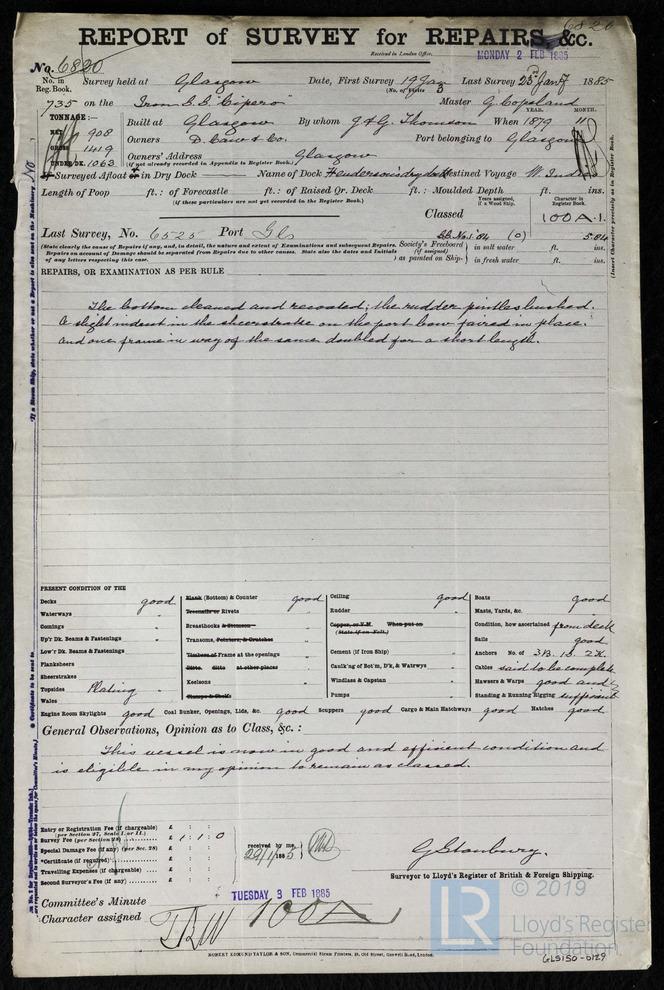 6820
REPORT of SURVEY for REPAIRS, &c.
Received in London Office,
MONDAY 2 FEB 1885
No. 6820
No. in Reg. Book. Survey held at Glasgow Date, First Survey 19 Jany Last Survey 25 Jany 1885
(No. of Visits 3
735 on the Iron S.S. "Cipero" Master G. Copeland
TONNAGE:— YEAR. MONTH.
NET 908 Built at Glasgow By whom J & G Thomson When 1879 11
GROSS 1419 Owners D. Caw & Co. Port belonging to Glasgow
UNDER DK. 1063 Owners' Address Glasgow
(if not already recorded in Appendix to Register Book.)
Surveyed Afloat or in Dry Dock Name of Dock Henderson's dry dock Destined Voyage W. Indies
Length of Poop ft.: of Forecastle ft.: of Raised Qr. Deck ft.: Moulded Depth ft. ins.
(if these particulars are not yet recorded in the Register Book).
Years assigned, if a Wood Ship. Character in Register Book.
Classed 100 A.1.
Last Survey, No. 6525 Port Gls S.S. No. 1. 84 (o) 5.84
(State clearly the cause of Repairs if any, and, in detail, the nature and extent of Examinations and subsequent Repairs.
Repairs on account of Damage should be separated from Repairs due to other causes. State also the dates and Initials
of any letters respecting this case.
Society's Freeboard (if assigned) as painted on Ship- in salt water ft. ins.
in fresh water ft. ins.
(Insert Character precisely as in Register Book.
REPAIRS, OR EXAMINATION AS PER RULE
The bottom cleaned and recoated; the rudder pintles bushed.
A slight indent in the sheerstrake on the port bow faired in place.
And one frame in way of the same doubled for a short length.
If a Steam Ship, state whether or not a Report is also sent on the Machinery No
PRESENT CONDITION OF THE
Decks good
Waterways "
Comings "
Up'r Dk. Beams & Fastenings "
Low'r Dk. Beams & Fastenings
Planksheers
Sheerstrakes
Topsides Plating "
Wales
Blank (Bottom) & Counter good
Treenails or Rivets "
Breasthooks & Stemson "
Transoms, Pointers, & Crutches "
Timbers of Frame at the openings "
Ditto. ditto at other places
Keelsons "
Clamps & Shelfs
Ceiling good
Rudder "
Copper, or Y.M. When put on
(State if on Felt.)
Cement (if Iron Ship) "
Caulk'ng of Bot'm, D'k, & Watrwys "
Windlass & Capstan "
Pumps "
Boats good
Masts, Yards, &c. "
Condition, how ascertained from deck
Sails good
Anchors No. of 3.B. 1.S. 2.K.
Cables said to be complete
Hawsers & Warps good and
Standing & Running Rigging sufficient
Engine Room Skylights good Coal Bunker, Openings, Lids, &c. good Scuppers good Cargo & Main Hatchways good Hatches good
General Observations, Opinion as to Class, &c.:
This vessel is now in good and efficient condition and
is eligible in my opinion to remain as classed.
Entry or Registration Fee (if chargeable) £ : :
(per Section 27, Scale I. or II.)
Survey Fee (per Section 28) £ 1 : 1 : 0
Special Damage Fee (if any) (per Sec. 28) £ : :
*Certificate (if required) £ : :
Travelling Expenses (if chargeable) £ : :
Second Surveyor's Fee (if any) £ : :
received by me,
29/1/1885
G Stanbury.
Surveyor to Lloyd's Register of British & Foreign Shipping.
Committee's Minute TUESDAY 3 FEB 1885
Character assigned 100A
ROBERT EDMUND TAYLOR & SON, Commercial Steam Printers, 19, Old Street, Goswell Road, London.
LR
© 2019
Lloyd's Register
Foundation
GLS150-0129